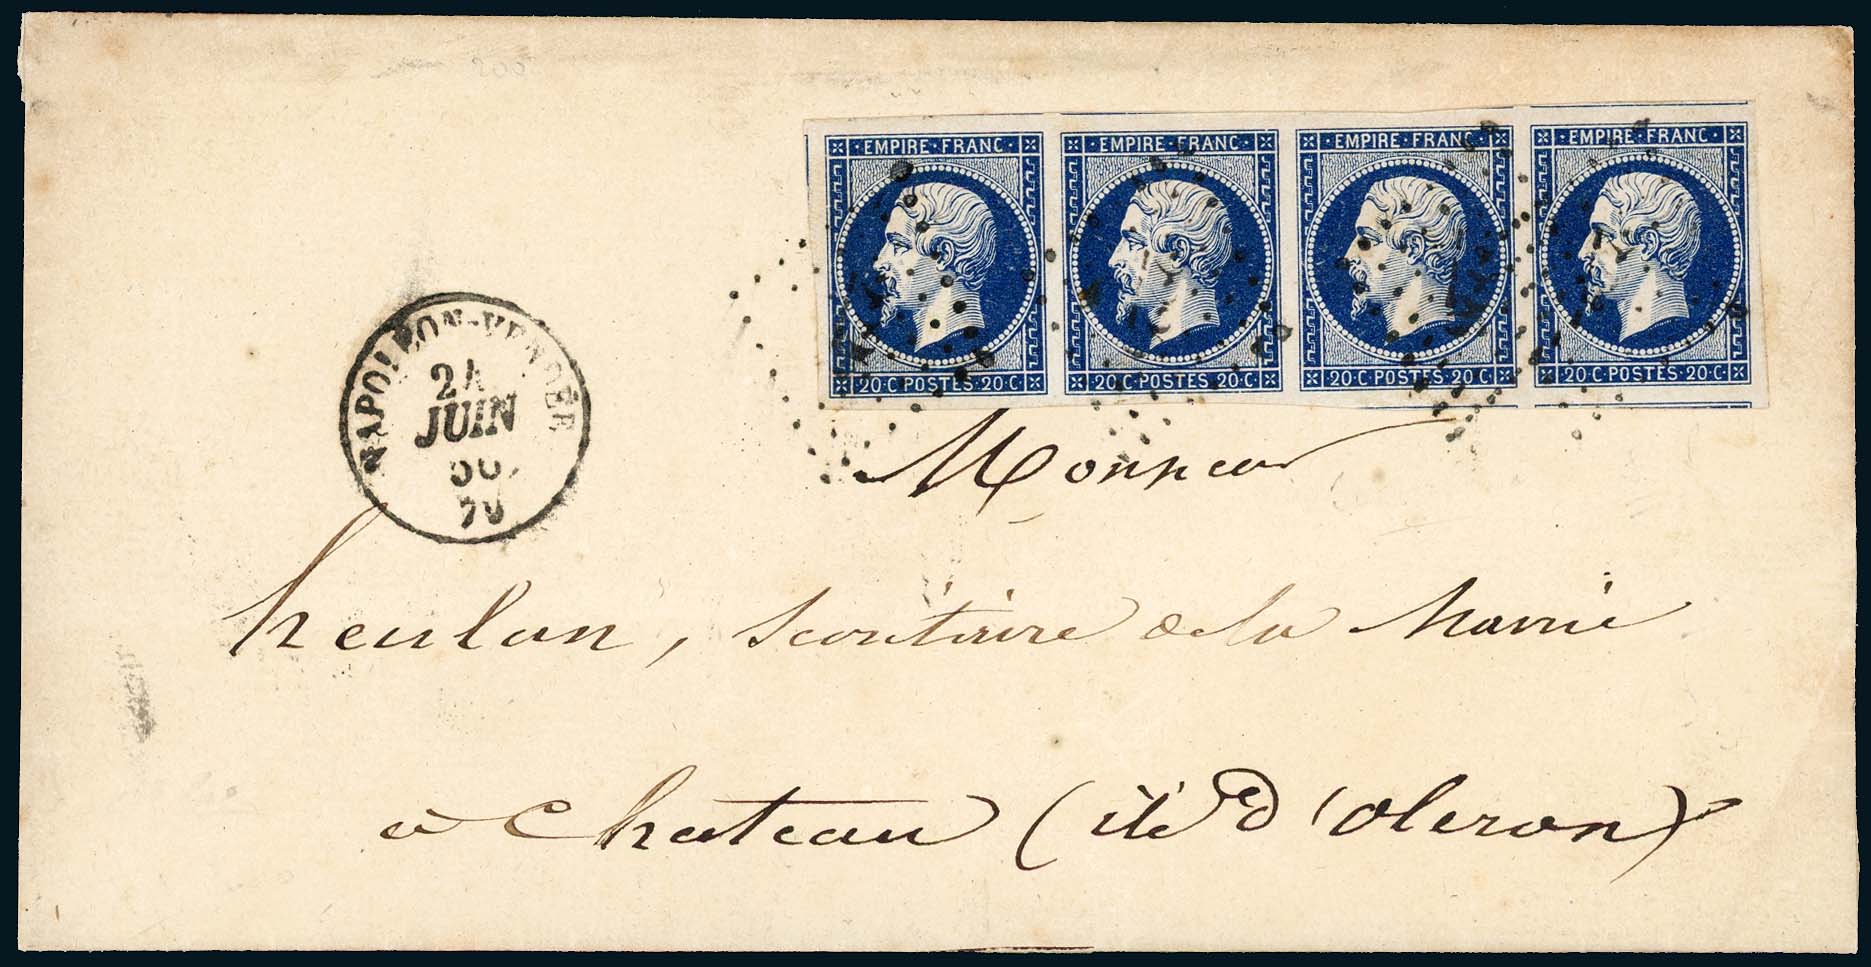 ·EMPIRE·FRANC· ·EMPIRE·FRANC· ·EMPIRE·FRANC· ·EMPIRE·FRANC·
20·C·POSTES·20·C· 20·C·POSTES·20·C· 20·C·POSTES·20·C· 20·C·POSTES·20·C·
NAPOLEON-VENDÉE
JUIN
Monsieur
heulan, secrétaire de la Mairie
à Chateau (ile d'oleron)